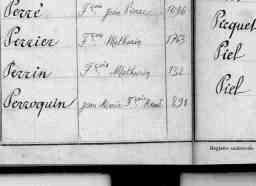 Perré fçois Jean Pierre 1096
Perrier fçois Mathurin 1763
Perrin fçois Mathurin 132
Perroquin Jean Marie fçois René 891
Picquet
Piel
Piel